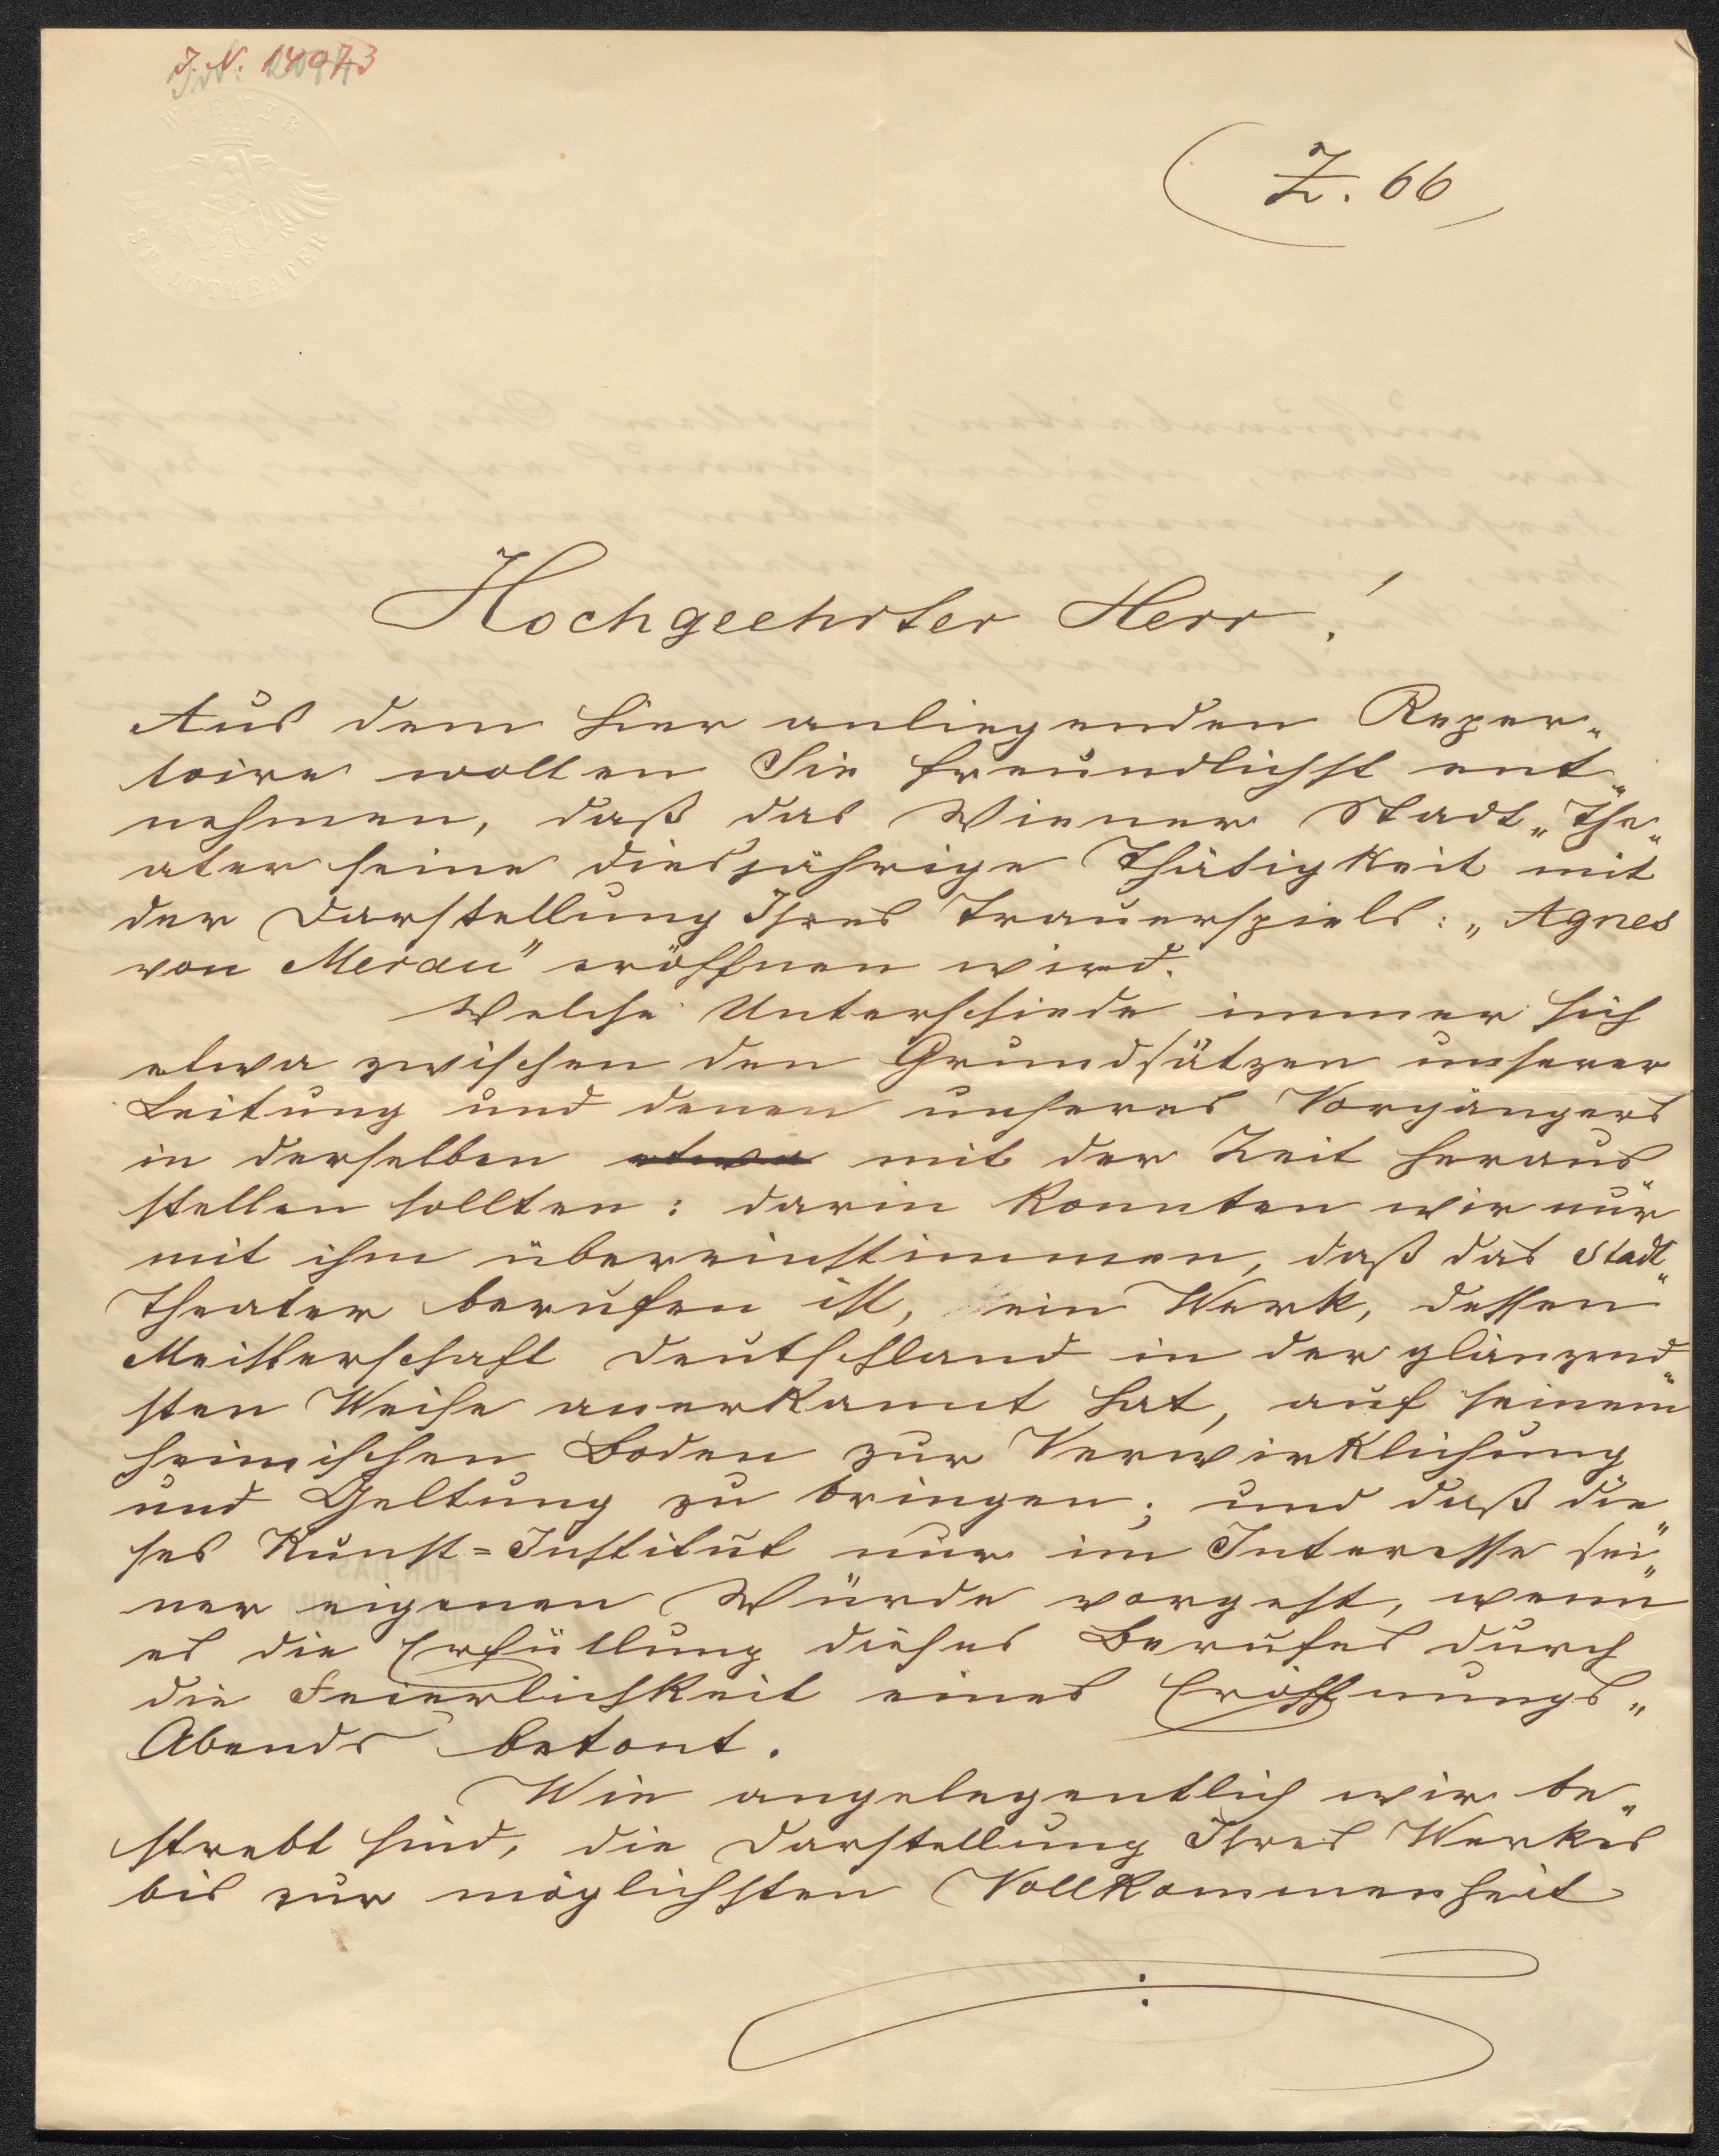 J. N. 14973
WIENER
STADTTHEATER
Z. 66
Hochgeehrter Herr!
Aus dem hier anliegenden Reper„
toire wollen Sie freundlichst ent„
nehmen, daß das Wiener Stadt„The„
ater seine diesjährige Thätigkeit mit
der Darstellung Ihres Trauerspiels: „Agnes
von Meran" eröffnen wird.
Welche Unterschiede immer sich
etwa zwischen den Grundsätzen unserer
Leitung und denen unseres Vorgängers
in derselben etwa mit der Zeit heraus
stellen sollten: darin konnten wir nur
mit ihm übereinstimmen, daß das Stadt„
Theater berufen ist, ein Werk, dessen
Meisterschaft Deutschland in der glänzend„
sten Weise anerkannt hat, auf seinem
heimischen Boden zur Verwirklichung
und Geltung zu bringen; und daß die„
ses Kunst=Institut nur im Interesse sei„
ner eigenen Würde vorgeht, wenn
es die Erfüllung dieses Berufes durch
die Feierlichkeit eines Eröffnungs„
Abends betont.
Wie angelegentlich wir be„
strebt sind, die Darstellung Ihres Werkes
bis zur möglichsten Vollkommenheit